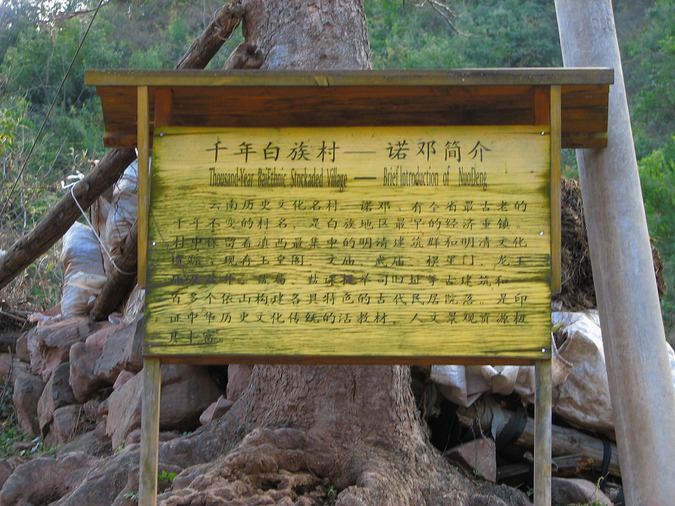 千年白族村——诺邓简介
Thousand-Year BaiEthnic Stockaded Village — Brief Introduction of NuoDeng
云南历史文化名村——诺邓,有全省最古老的
千年不变的村名,是白族地区最早的经济重镇,
村中保留着滇西最集中的明清建筑群和明清文化
现有玉皇阁、文庙、武庙、棂星门、龙王
盐课提举司旧址等古建筑和
百多个依山构建各具特色的古代民居院落,是印
证中华历史文化传统的活教材,人文景观资源极
其丰富。